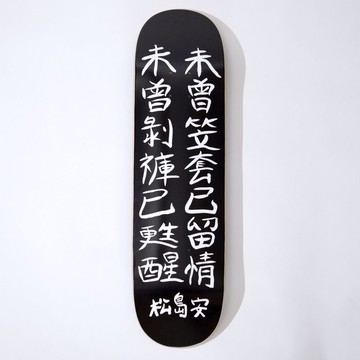 未曾笠套已留情
未曾剝褲已甦醒
松島安